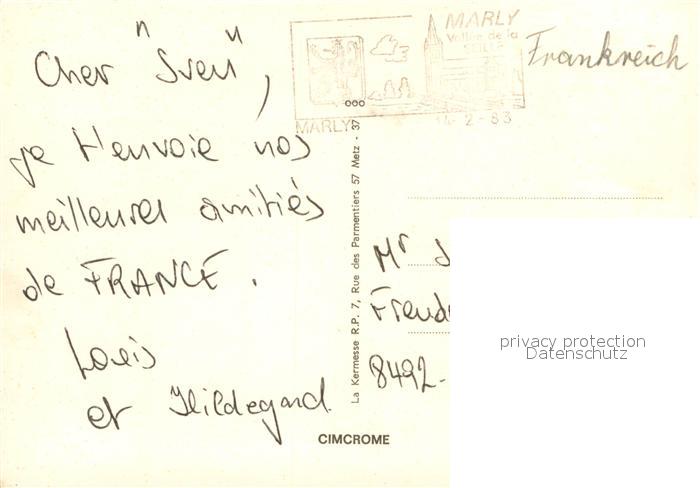 Cher "Sven",
je t'envoie nos
meilleures amitiés
de FRANCE.
Louis
et Hildegard
MARLY
Vallée de la
SEILLE
MARLY
-2-83
Frankreich
La Kermesse R.P. 7, Rue des Parmentiers 57 Metz - 37
Mr S
Freud
8492-
privacy protection
Datenschutz
CIMCROME